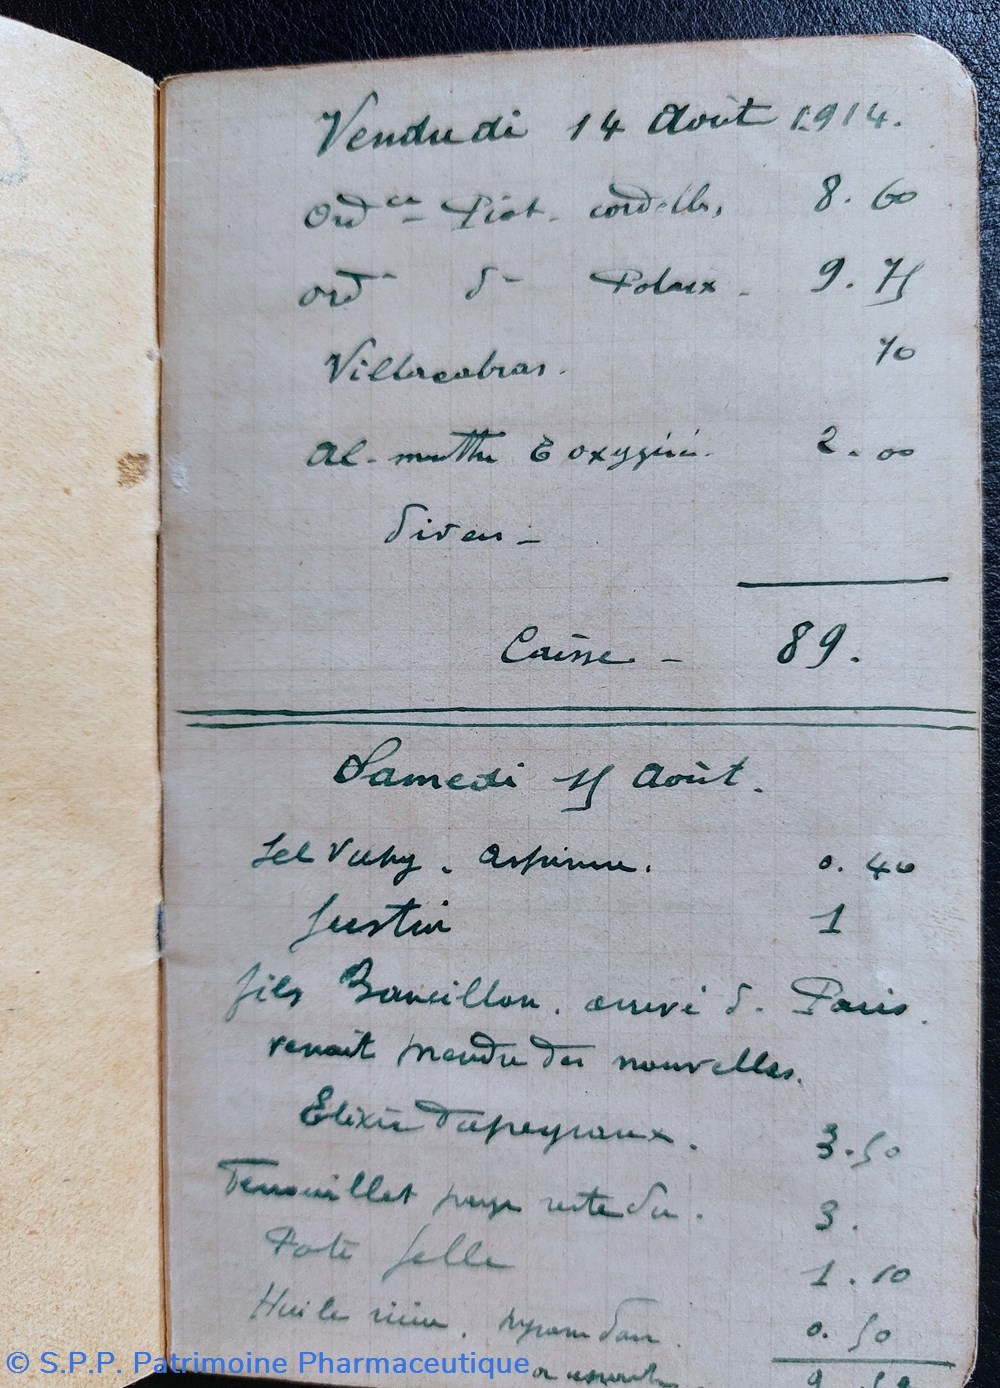 Vendredi 14 Août 1914.
Ordce Piot. cordelle, 8.60
Ord d Polaux - 9.75
Villacabras. 70
Al. menthe & oxygéné. 2.00
divers -
Caisse - 89.
Samedi 15 Août.
Sel Vichy. Aspirine. 0.40
Justin 1
fils Bareillon. arrivé d. Paris.
venait prendre des nouvelles.
Elixir Dupeyroux. 3.50
paye reste du. 3.
Pate 1.10
Huile ricin. 0.50
© S.P.P. Patrimoine Pharmaceutique